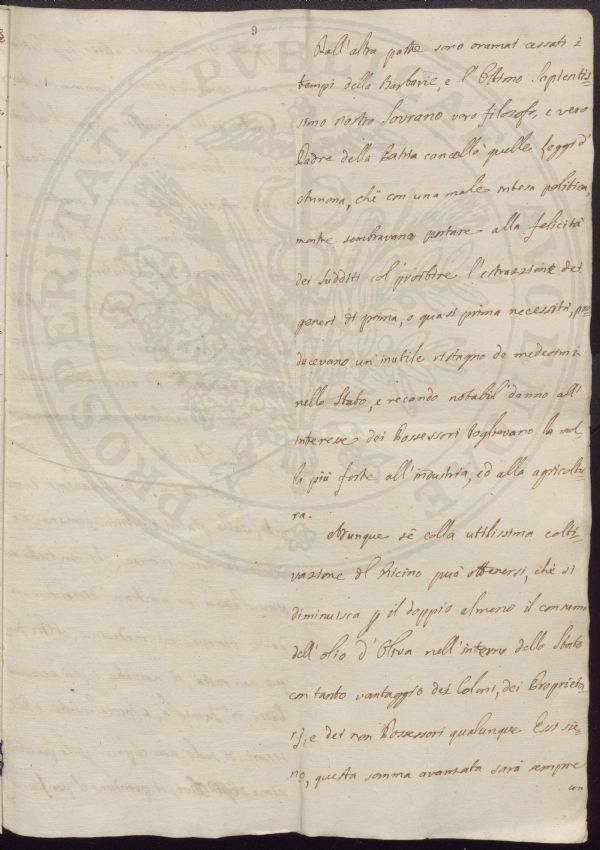 9
Dall'altra parte sono oramai cessati i
tempi della Barbarie, e l'Ottimo Sapientis=
simo nostro Sovrano vero filosofo, e vero
Padre della Patria cancellò quelle Leggi d'
Annona, chè con una male intesa politica,
mentre sembravano portare alla felicità
dei Sudditi col proibire l'estrazzione dei
generi di prima, o quasi prima necessità, pro
ducevano un'inutile ristagno de medesimi
nello Stato, e recando notabil danno all'
interesse dei Possessori toglievano la mol
la più forte all'industria, ed alla agricoltu=
ra.
Adunque sè colla utilissima colti=
vazione del Ricino può ottenersi, chè si
diminuisca p il doppio almeno il consumo
dell'olio d'Oliva nell'interno dello Stato
con tanto vantaggio dei Coloni, dei Proprieta
rj, e dei non Possessori qualunque Essi sie=
no, questa somma avanzata sarà sempre
con
PROSPERITATI PVBLICAE